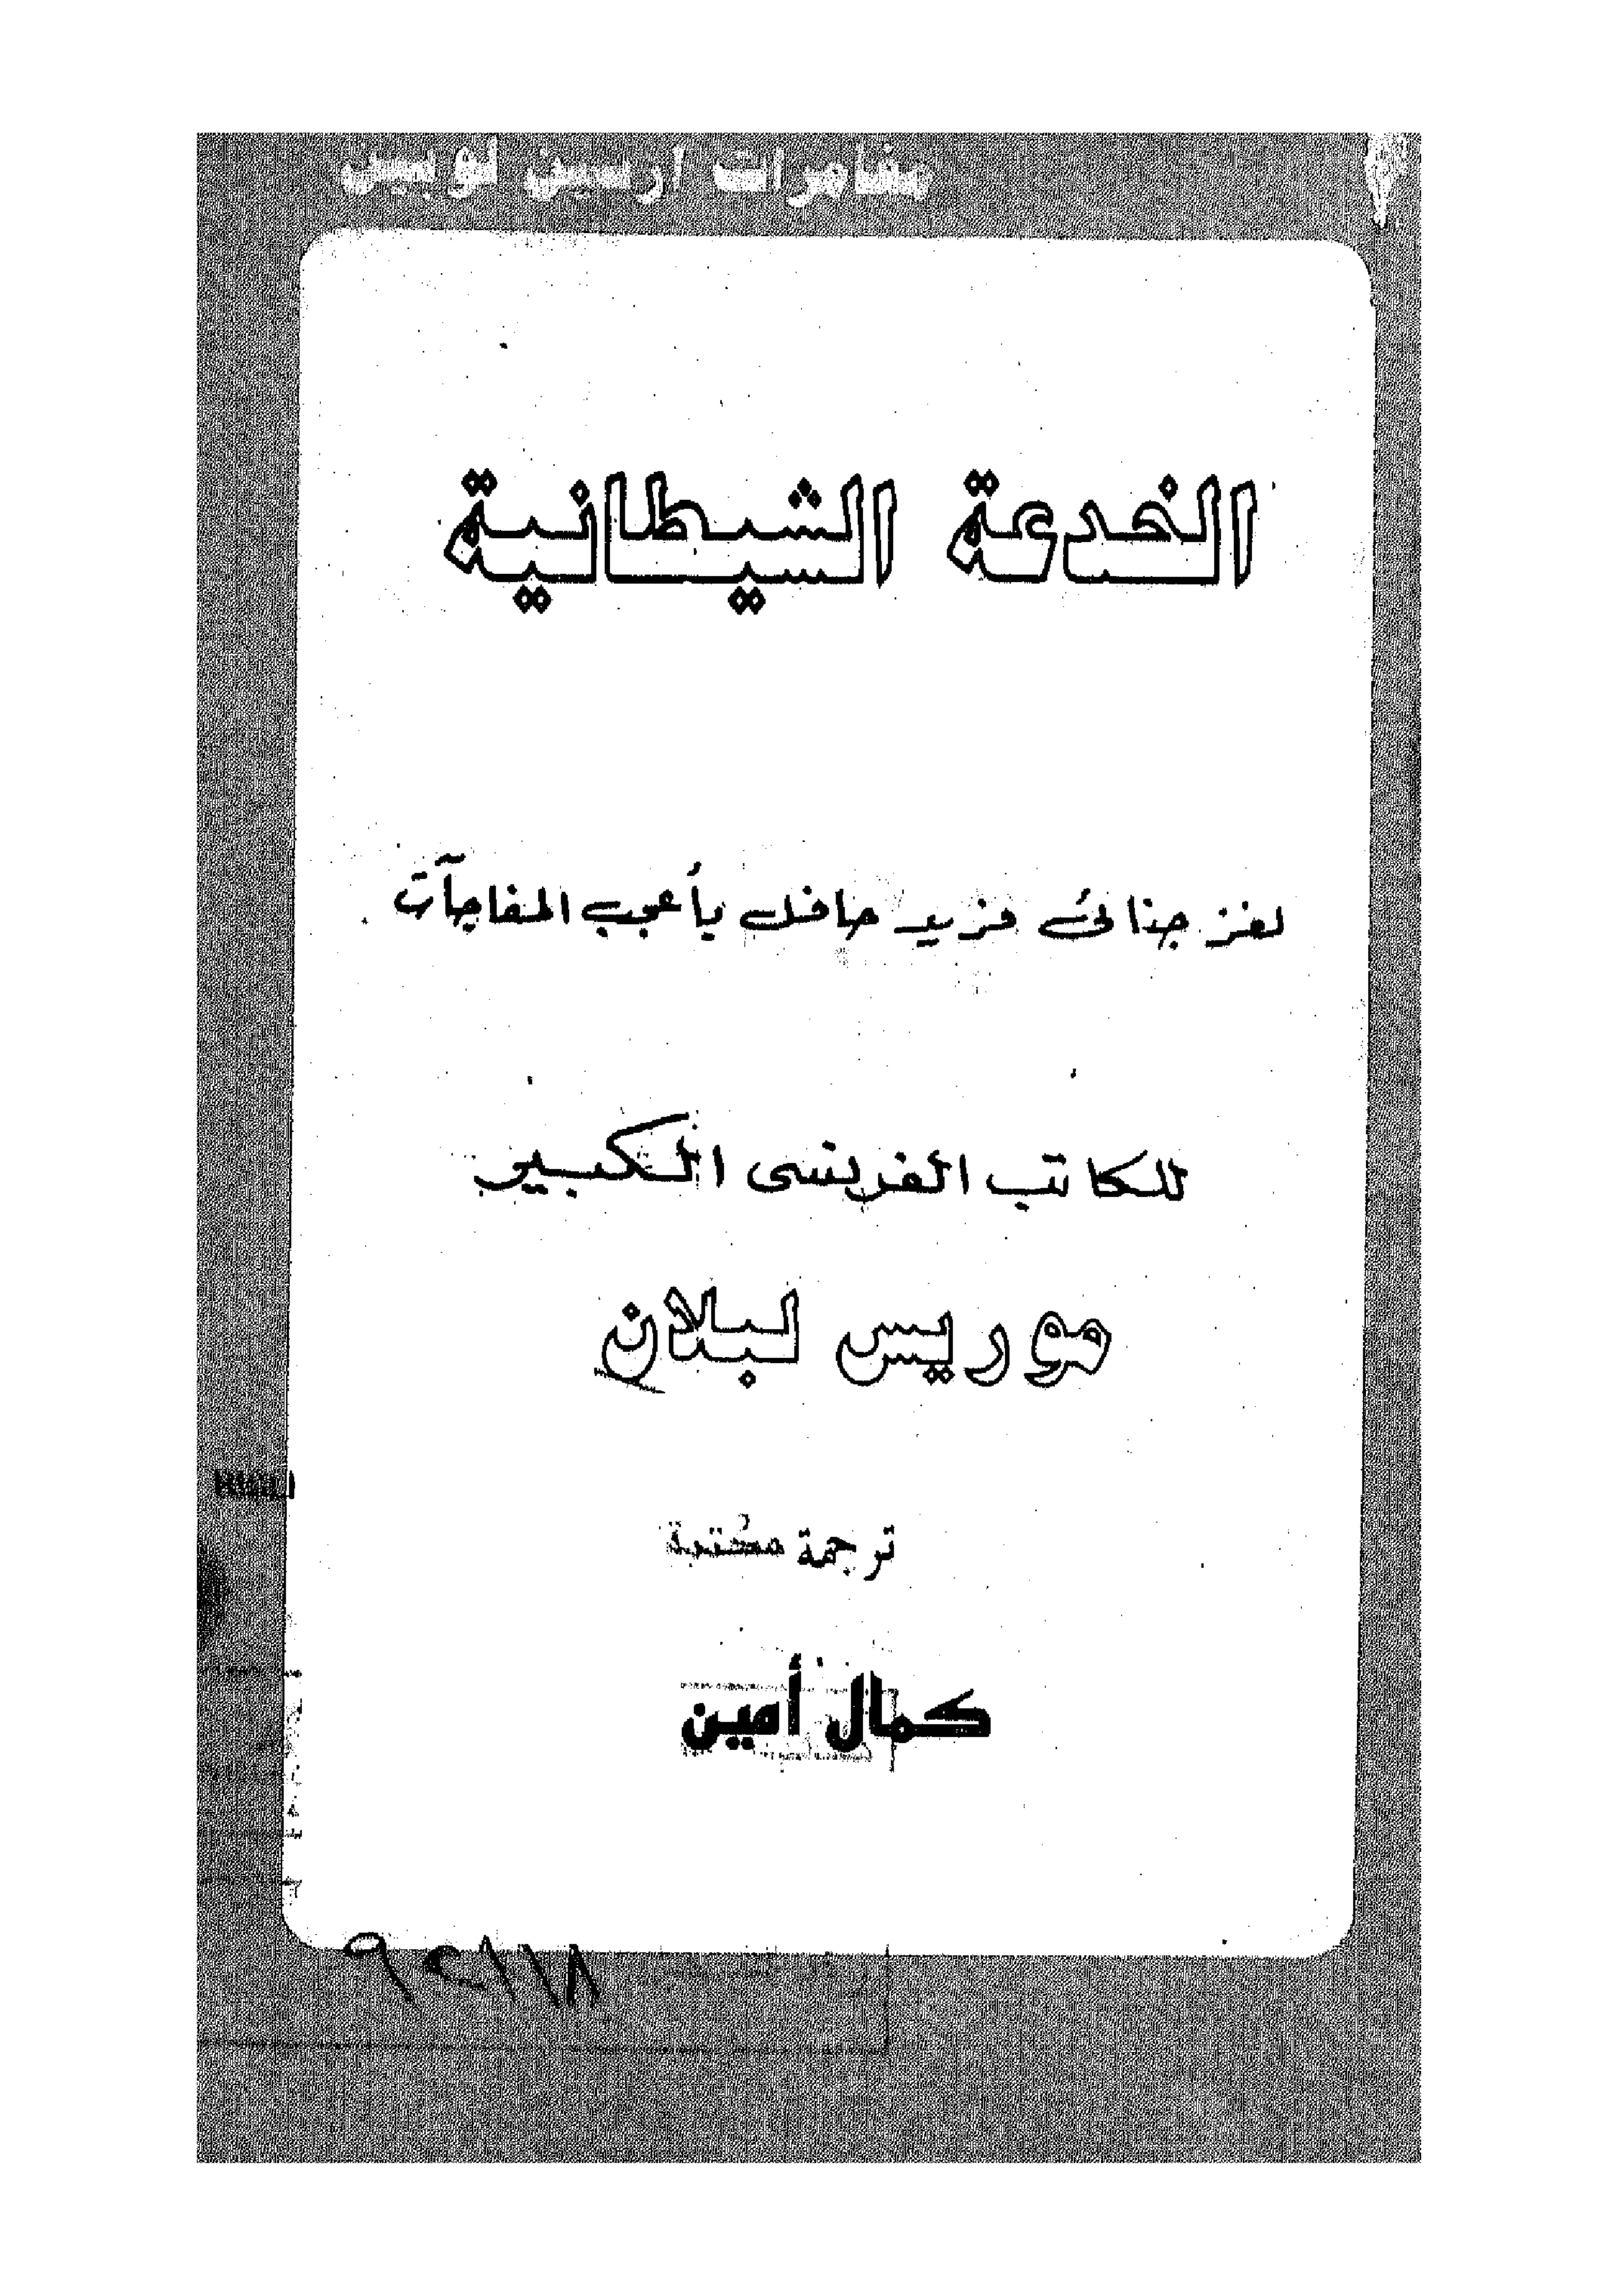 مغامرات ارسين لوبين
الخدعة الشيطانية
لغز جنائى فريد حافل بأعجب المفاجآت
للكاتب الفرنسى الكبير
موريس لبلان
ترجمة مكتبة
كمال أمين